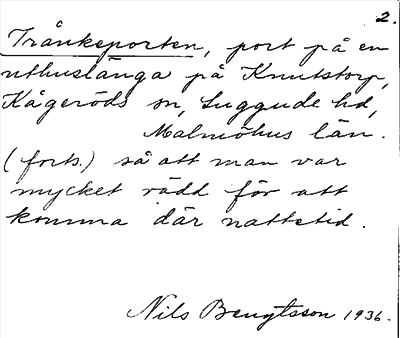 2.
Trånkeporten, port på en
uthuslänga på Knutstorp,
Kågeröds sn, Luggude hd,
Malmöhus län.
(forts.) så att man var
mycket rädd för att
komma där nattetid.
Nils Bengtsson 1936.